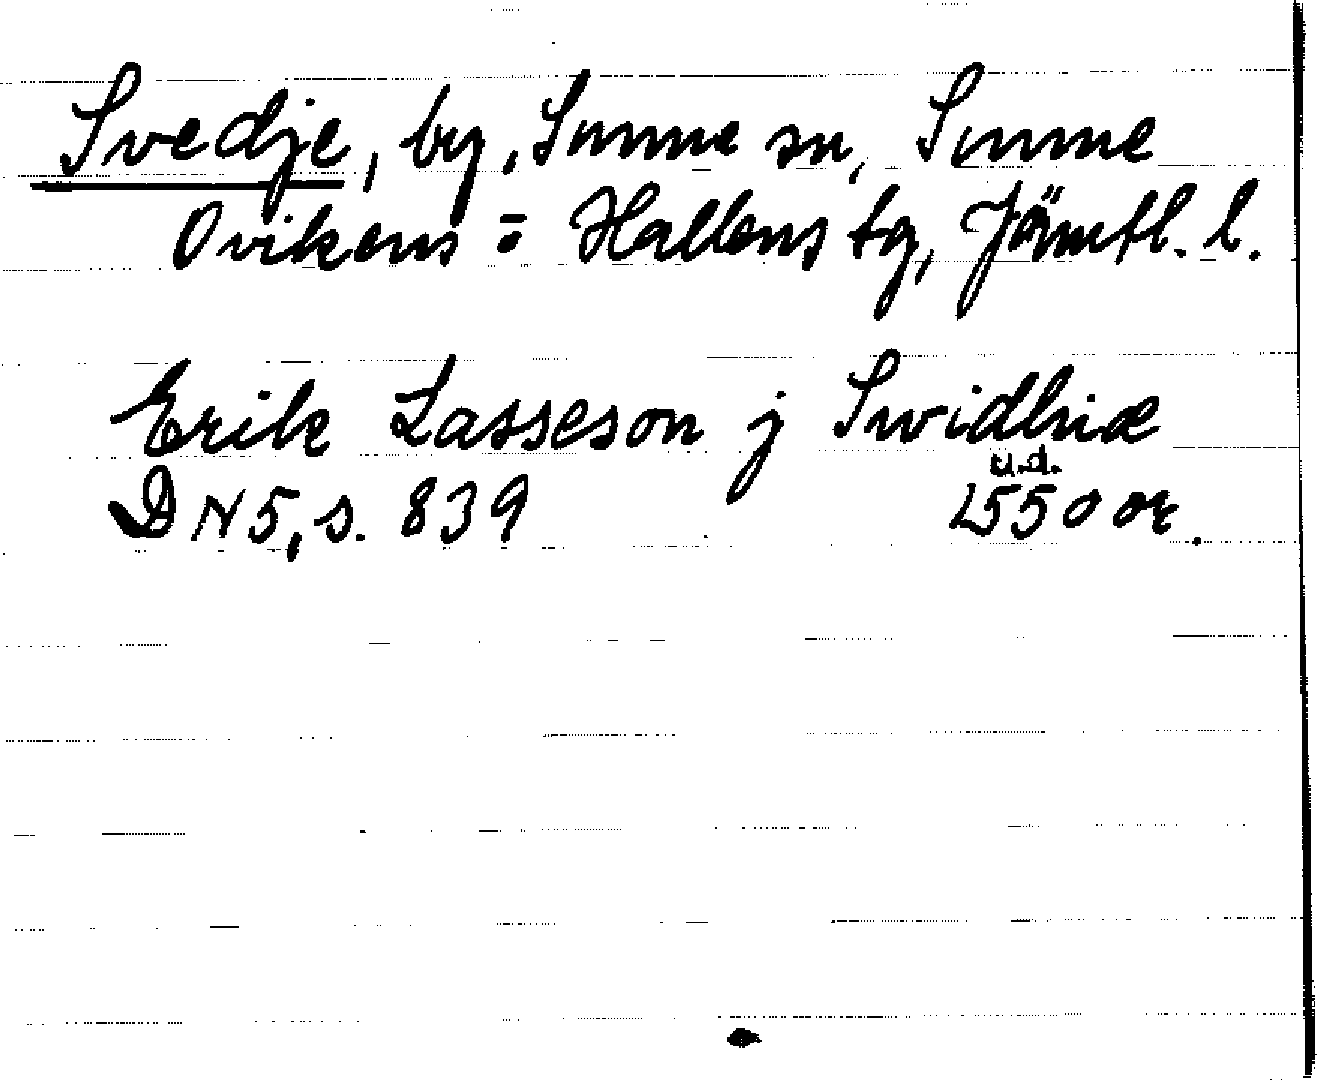 Svedje, by, Sunne sn, Sunne
Ovikens = Hallens tg, Jämtl. l.
Erik Lasseson j Swidhiæ
u.d.
DN 5, s. 839 1550 or.